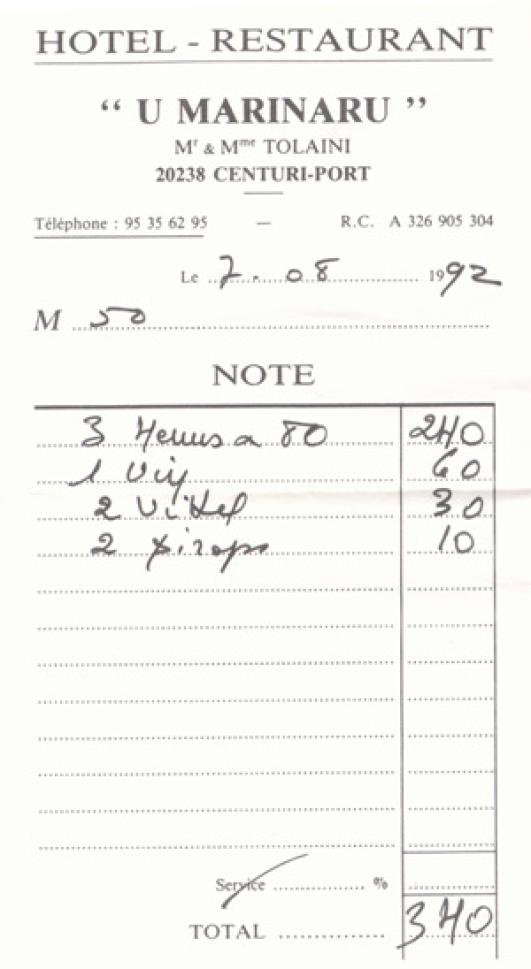 HOTEL - RESTAURANT
“ U MARINARU ”
Mr & Mme TOLAINI
20238 CENTURI-PORT
Téléphone : 95 35 62 95 — R.C. A 326 905 304
Le 7. 08 1992
M 50
NOTE
3 Menus a 80 240
1 Vin 60
2 Vittel 30
2 sirops 10
Service %
TOTAL 340